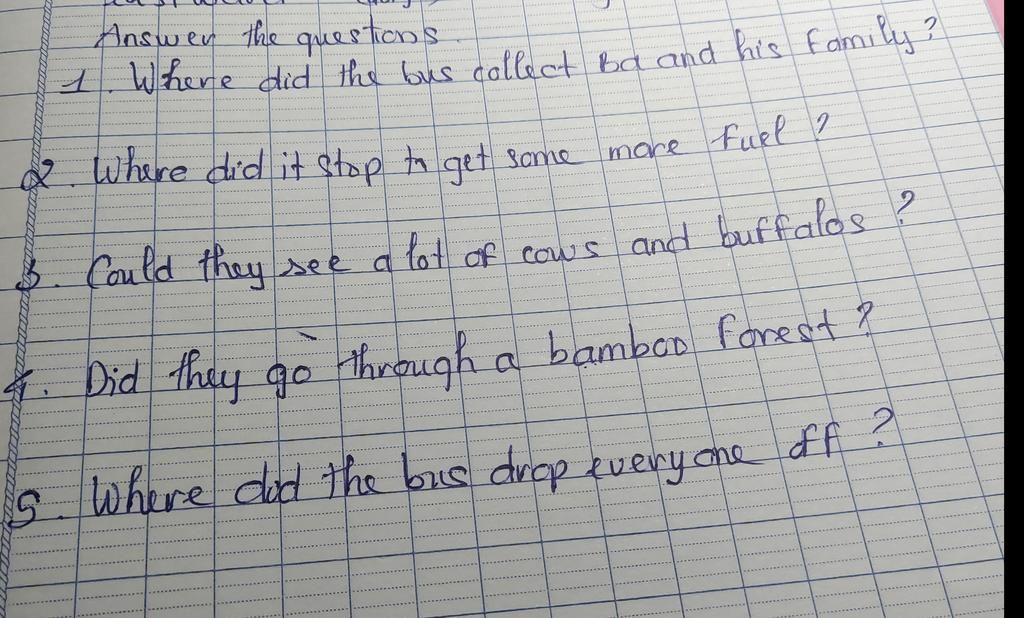 Answer the questions.
1. Where did the bus collect Ba and his family?
2. Where did it stop to get some more fuel?
3. Could they see a lot of cows and buffalos?
4. Did they go through a bamboo forest?
5. Where did the bus drop everyone off?